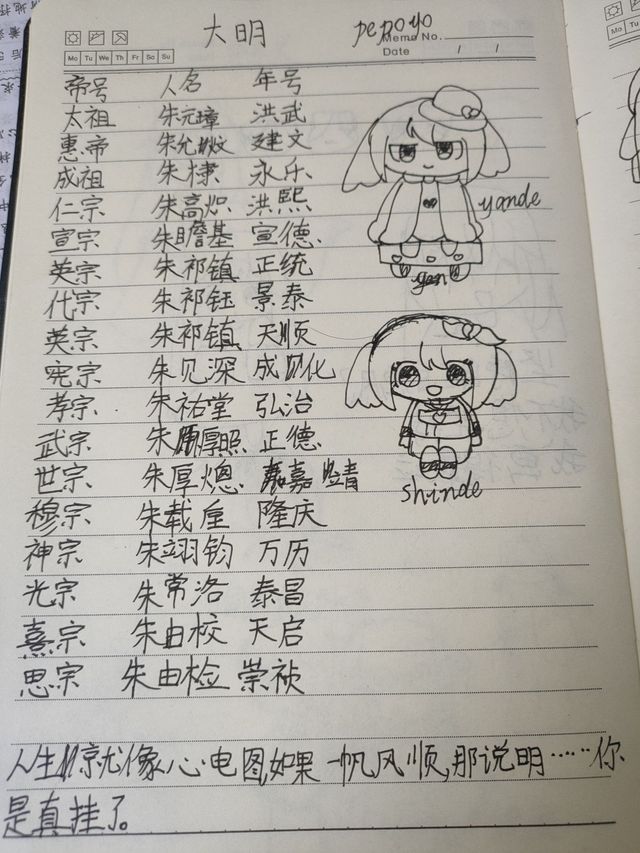 大明
pepoyo
Memo No.
Mo Tu We Th Fr Sa Su
Date / /
帝号 人名 年号
太祖 朱元璋 洪武
惠帝 朱允炆 建文
成祖 朱棣 永乐
仁宗 朱高炽 洪熙
yande
宣宗 朱瞻基 宣德
英宗 朱祁镇 正统
yan
代宗 朱祁钰 景泰
英宗 朱祁镇 天顺
宪宗 朱见深 成化
孝宗 朱祐堂 弘治
武宗 朱厚照 正德
世宗 朱厚熜 嘉靖
shinde
穆宗 朱载垕 隆庆
神宗 朱翊钧 万历
光宗 朱常洛 泰昌
熹宗 朱由校 天启
思宗 朱由检 崇祯
人生就像心电图,如果一帆风顺,那说明……你
是真挂了。